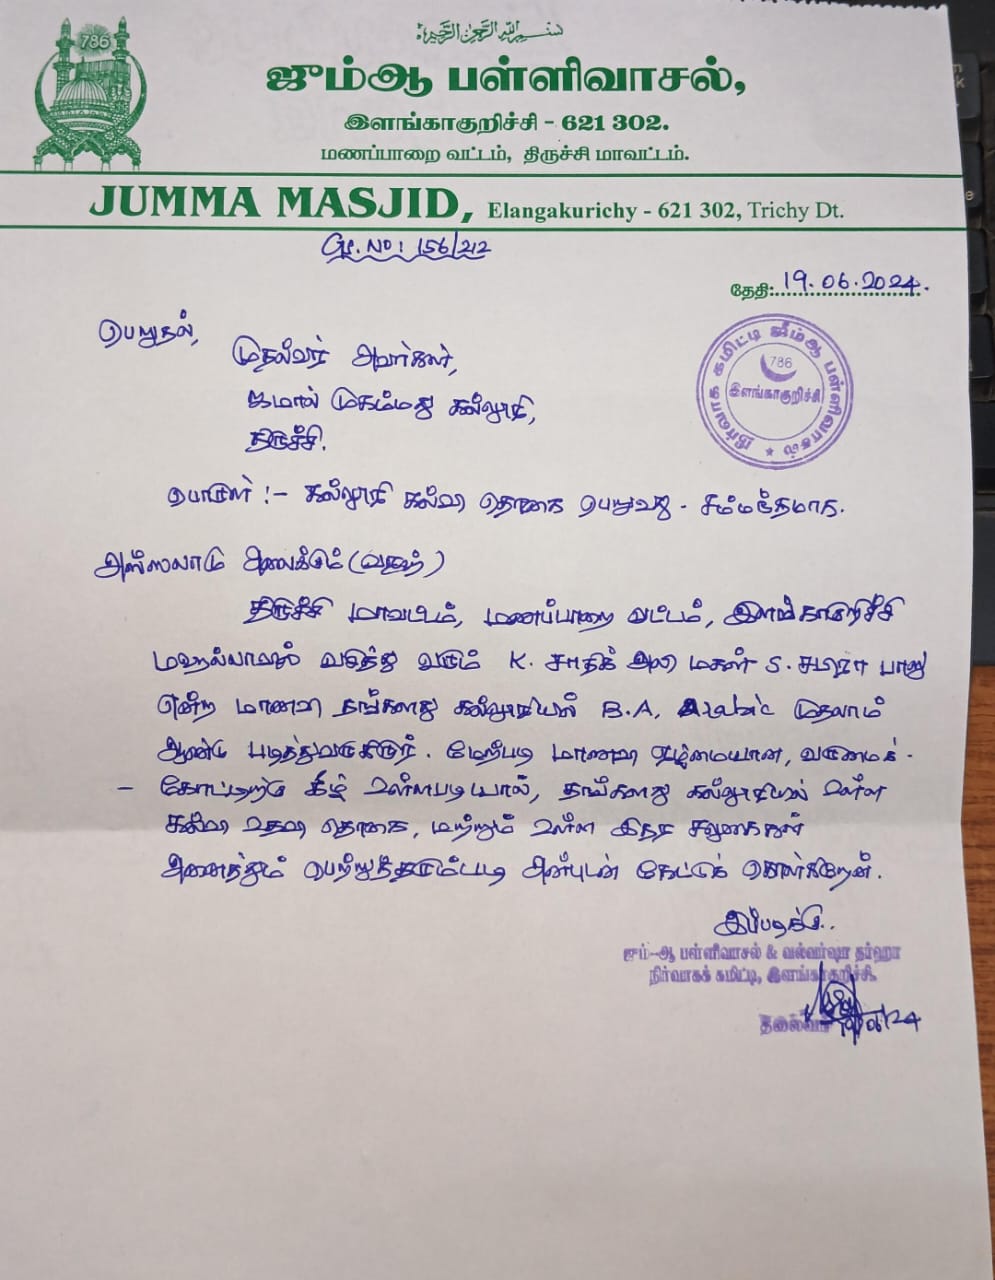 786
بسم الله الرحمن الرحيم
ஜும்ஆ பள்ளிவாசல்,
இளங்காகுறிச்சி - 621 302.
மணப்பாறை வட்டம், திருச்சி மாவட்டம்.
JUMMA MASJID, Elangakurichy - 621 302, Trichy Dt.
No: 156/212
தேதி: 19.06.2024.
பெறுதல்,
முதல்வர் அவர்கள்,
ஜமால் முகம்மது கல்லூரி,
திருச்சி.
நிர்வாக கமிட்டி ஜும்ஆ பள்ளிவாசல்
786
இளங்காகுறிச்சி
பொருள் :- கல்லூரி கல்வி தொகை பெறுவது - சம்மந்தமாக.
அஸ்ஸலாமு அலைக்கும் (வரஹ்)
திருச்சி மாவட்டம், மணப்பாறை வட்டம், இளங்காகுறிச்சி
மஹல்லாவில் வசித்து வரும் K. சாதிக் அலி மகள் S. சமீரா பானு
என்ற மாணவி தங்களது கல்லூரியில் B.A, Arabic முதலாம்
ஆண்டு படித்துவருகிறார். மேற்படி மாணவி ஏழ்மையான, வருமைக் -
- கோட்டிற்கு கீழ் உள்ளபடியால், தங்களது கல்லூரியில் உள்ள
கல்வி உதவி தொகை, மற்றும் உள்ள இதர சலுகைகள்
அனைத்தும் பெற்றுத்தரும்படி அன்புடன் கேட்டுக் கொள்கிறேன்.
இப்படிக்கு..
ஜும்-ஆ பள்ளிவாசல் & வல்லர்ஷா தர்ஹா
நிர்வாகக் கமிட்டி, இளங்காகுறிச்சி.
தலைவர்
19/06/24